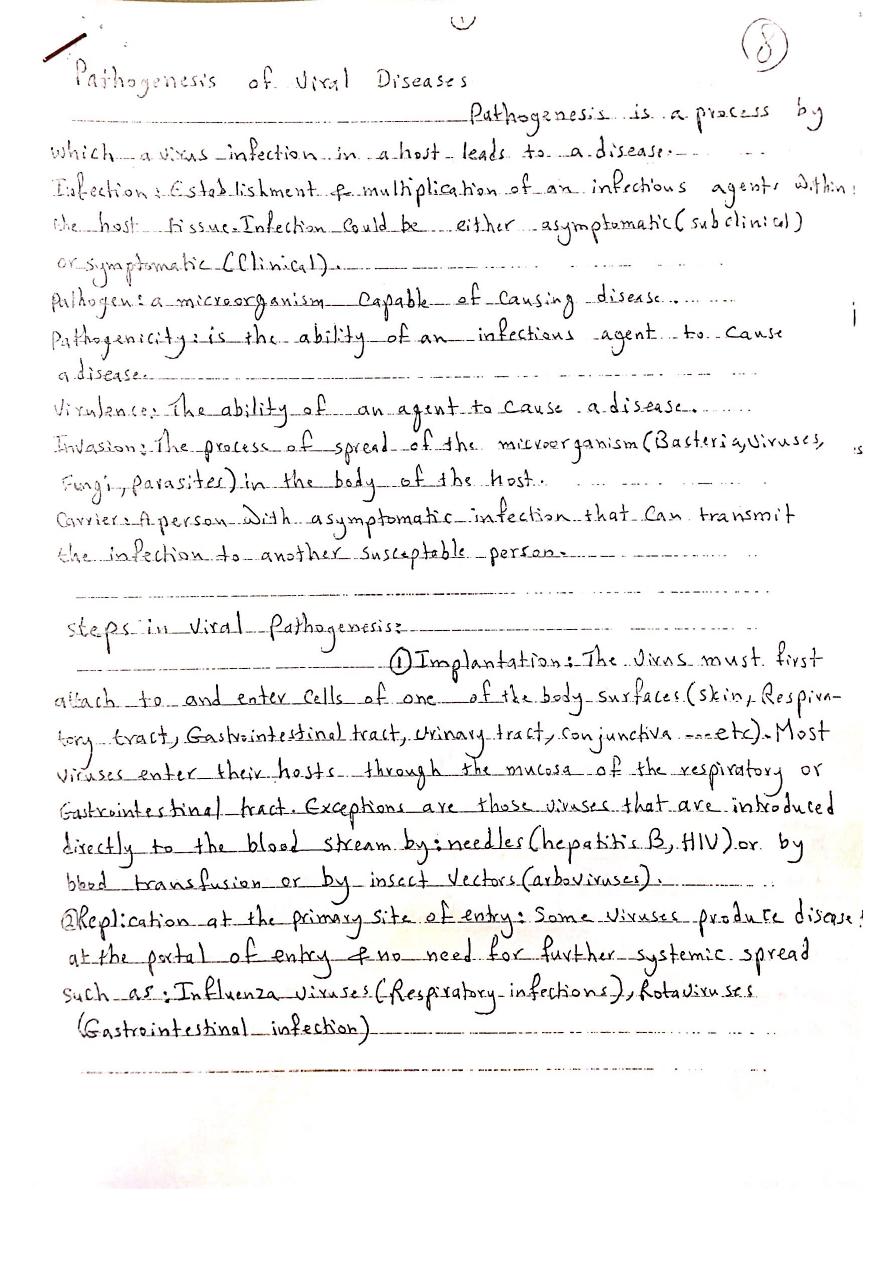 1
8
Pathogenesis of Viral Diseases
Pathogenesis is a process by
which a virus infection in a host leads to a disease.
Infection: Establishment & multiplication of an infectious agents within
the host tissue. Infection Could be either asymptomatic (subclinical)
or symptomatic (Clinical).
Pathogen: a microorganism Capable of Causing disease.
Pathogenicity: is the ability of an infectious agent to Cause
a disease.
Virulence: The ability of an agent to cause a disease.
Invasion: The process of spread of the microorganism (Bacteria, viruses,
Fungi, parasites) in the body of the host.
Carrier: A person with asymptomatic infection that Can transmit
the infection to another susceptable person.
steps in Viral Pathogenesis:
① Implantation: The virus must first
attach to and enter Cells of one of the body surfaces (skin, Respira-
tory tract, Gastrointestinal tract, Urinary tract, Conjunctiva ---etc). Most
viruses enter their hosts through the mucosa of the respiratory or
Gastrointestinal tract. Exceptions are those viruses that are introduced
directly to the blood stream by: needles (hepatitis B, HIV) or by
blood transfusion or by insect Vectors (arboviruses).
② Replication at the primary site of entry: Some viruses produce disease
at the portal of entry & no need for further systemic spread
such as: Influenza viruses (Respiratory infections), Rotaviruses
(Gastrointestinal infection)